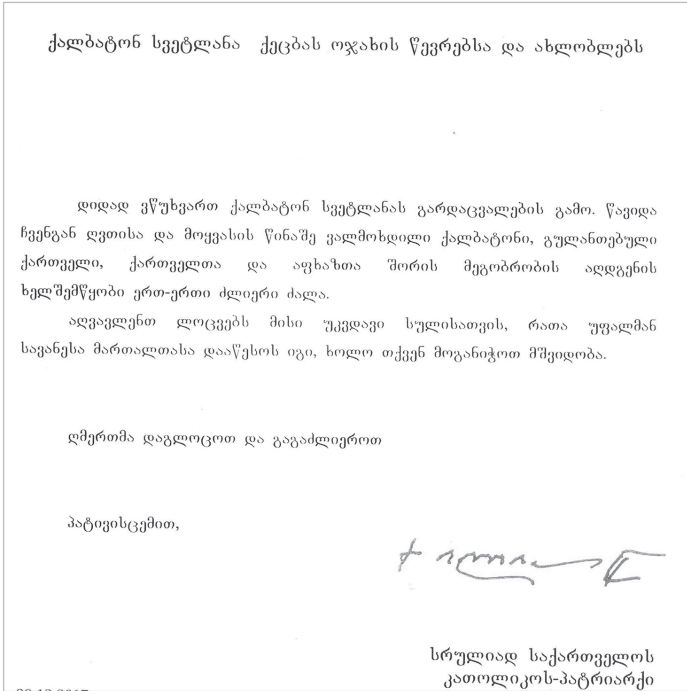 ქალბატონ სვეტლანა ქეცბას ოჯახის წევრებსა და ახლობლებს
დიდად ვწუხვართ ქალბატონ სვეტლანას გარდაცვალების გამო. წავიდა
ჩვენგან ღვთისა და მოყვასის წინაშე ვალმოხდილი ქალბატონი, გულანთებული
ქართველი, ქართველთა და აფხაზთა შორის მეგობრობის აღდგენის
ხელშემწყობი ერთ-ერთი ძლიერი ძალა.
აღვავლენთ ლოცვებს მისი უკვდავი სულისათვის, რათა უფალმან
სავანესა მართალთასა დააწესოს იგი, ხოლო თქვენ მოგანიჭოთ მშვიდობა.
ღმერთმა დაგლოცოთ და გაგაძლიეროთ
პატივისცემით,
სრულიად საქართველოს
კათოლიკოს-პატრიარქი